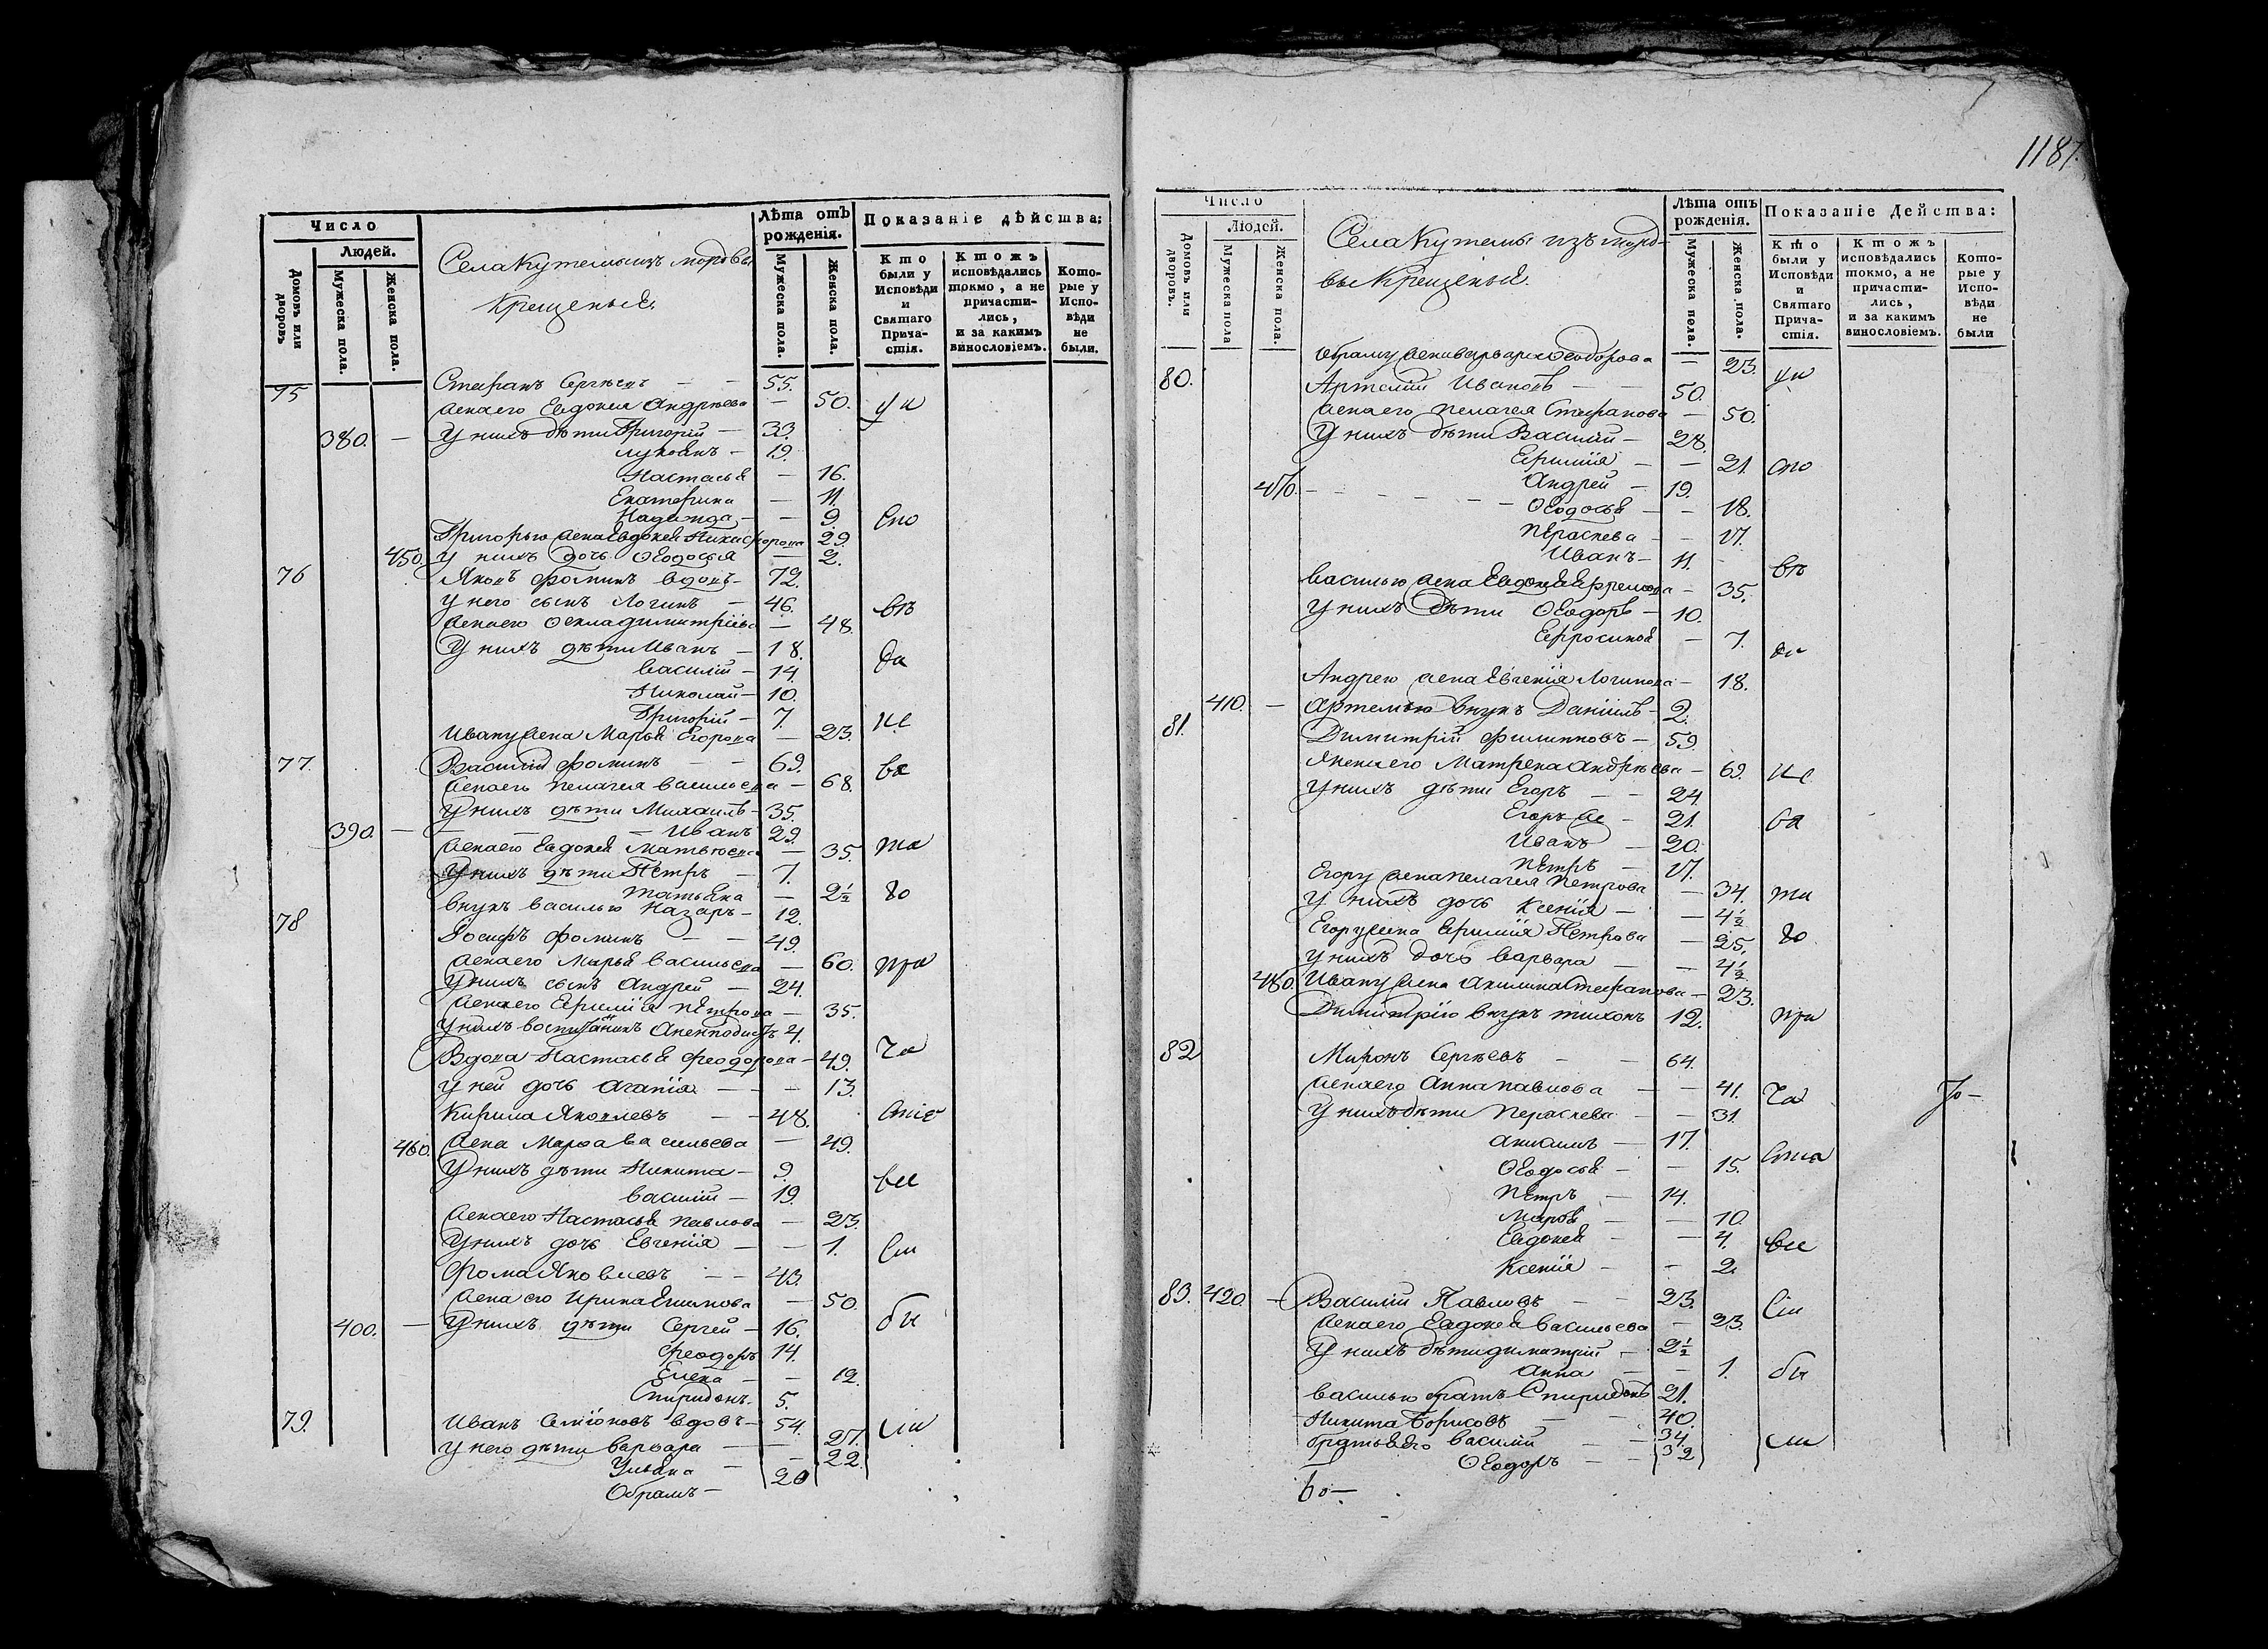 Число
Людей.
Домовъ или дворовъ
Мужеска пола.
Женска пола.
Села Кутемы изъ мордвы
Крещеныя.
Лѣта отъ рожденія.
Мужеска пола.
Женска пола.
Показаніе дѣйства:
Кто были у Исповѣди и Святаго Прича-стія.
Ктожъ исповѣдались токмо, а не причасти-лись, и за какимъ винословіемъ.
Кото-рые у Испо-вѣди не были.
75 Стефанъ Сергѣевъ — — 55.
Жена его Евдокея Андрѣева — 50. у и
380. — У нихъ дѣти Григорій — 33.
Лукоянъ — 19.
Настасья — 16.
Екатерина — 11.
Надежда — — 9. Спо
Григорью жена Евдокея Никифорова 29.
450. У нихъ дочь Ѳеодосья — 2.
76 Яковъ Фоминъ вдовъ — 72.
У него сынъ Логинъ — 46. вѣ
Жена его Ѳекла Димитріева — 48.
У нихъ дѣти Иванъ — 18. да
Василій — 14.
Николай — 10.
Григорій — 7. не
Ивану жена Марья Егорова — 23.
77. Василій Фоминъ — — 69. ва
Жена его Пелагея Васильева — 68.
У нихъ дѣти Михаилъ — 35.
390. — — Иванъ 29.
Жена его Евдокея Матвеева — 35. та
У нихъ дѣти Петръ — 7.
Татьяна — 2½ го
внукъ Василью Назаръ — 12.
78 Іосифъ Фоминъ — — 49.
Жена его Марья Васильева — 60. при
У нихъ сынъ Андрей — 24.
Жена его Ефимія Петрова — 35.
У нихъ воспитанникъ Анемподистъ 4.
Вдова Настасья Феодорова — 49. ча
У ней дочь Агапія — — 13.
Кирила Яковлевъ — — 48. стіе
460. Жена Марфа Васильева — 49.
У нихъ дѣти Никита — 9. все
Василій — 19.
Жена его Настасья Павлова — 23.
У нихъ дочь Евгенія — — 1. сіи
Фома Яковлевъ — — 43
Жена его Ирина Екимова — 50.
400. — У нихъ дѣти Сергей — 16. бы
Феодоръ 14.
Елена — — 12.
Спиридонъ 5.
79. Иванъ Семіоновъ вдовъ — 54. сіи
У него дѣти Варвара — — 27.
Ульяна — — 22.
Обрамъ — 20
1187.
Число
Людей.
Домовъ или дворовъ.
Мужеска пола
Женска пола.
Села Кутемы изъ морд-
вы Крещеныя.
Лѣта отъ рожденія.
Мужеска пола.
Женска пола.
Показаніе Действа:
Кто были у Исповѣди и Святаго Прича-стія.
Ктожъ исповѣдались токмо, а не причасти-лись, и за какимъ винословіемъ.
Кото-рые у Испо-вѣди не были
Обраму жена Варвара Ѳеодорова — 23. у и
80. Артемій Ивановъ — — 50.
Жена его Пелагея Стефанова — 50.
У нихъ дѣти Василій — 28.
Ефимія — — 21. спо
470. — — — Андрей — 19.
Ѳеодосья — — 18.
Пераскева — — 17.
Иванъ — 11. вѣ
Василью жена Евдокея Ефремова — 35.
У нихъ дѣти Ѳеодоръ — 10.
Ефросинья — 7. ди
Андрею жена Евгенія Логинова — 18.
410. — Артемью внукъ Даніилъ — 2.
81. Димитрій Филипповъ — 59.
Жена его Матрена Андрѣева — 69. не
У нихъ дѣти Егоръ — — 24.
Егоръ же — 21. ва
Иванъ — 20.
Петръ — 17.
Егору жена Пелагея Петрова — 34. та
У нихъ дочь Ксенія — — 4½
Егору жена Ефимія Петрова — 25. го
У нихъ дочь Варвара — — 4½
480. Ивану жена Акилина Стефанова — 23.
Димитрію внукъ Тихонъ 12. при
82 Миронъ Сергѣевъ — — 64.
Жена его Анна Павлова — — 41. ча
У нихъ дѣти Пераскева — — 31.
Акимъ — 17.
Ѳеодосья — — 15. стіа
Петръ — 14.
Марфа — — 10.
Евдокея — — 4. все
Ксенія — — 2
83. 420. — Василій Павловъ — — 23. сіи
Жена его Евдокея Васильева — 23.
У нихъ дѣти Димитрій — 2½
Анна — — 1. бы
Василью братъ Спиридонъ 21.
Никита Борисовъ — — 40.
братья его Василій — — 34 сіи
Ѳеодоръ — — 32